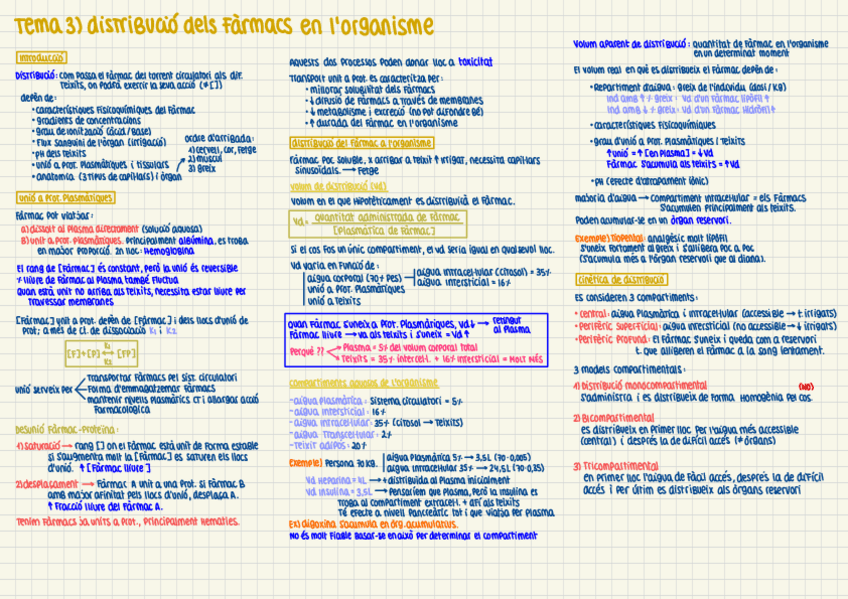 Tema 3) distribució dels fàrmacs en l'organisme
Introducció
Distribució: com passa el fàrmac del torrent circulatori als dif.
Teixits, on podrà exercir la seva acció (≠[])
depèn de:
• característiques fisicoquímiques del fàrmac
• gradients de concentracions
• grau de ionització (àcid/base)
• Flux sanguini de l'òrgan (irrigació)
• pH dels teixits
• unió a prot. plasmàtiques i tissulars
• anatomia (3 tipus de capil·lars) i òrgan
ordre d'arribada:
1) cervell, cor, fetge
2) múscul
3) greix
Unió a prot. plasmàtiques
Fàrmac pot viatjar:
a) dissolt al plasma directament (solució aquosa)
B) unit a prot. plasmàtiques. principalment albúmina. es troba
en major proporció. 2n lloc: hemoglobina
El rang de [Fàrmac] és constant, però la unió és reversible
× lliure de fàrmac al plasma, també fluctua
quan està unit no arriba als teixits, necessita estar lliure per
travessar membranes
[Fàrmac] unit a prot. depèn de [Fàrmac] i dels llocs d'unió de
prot; a més de ct. de dissociació K1 i K2
K1
[F]+[P] ⇆ [FP]
K2
unió serveix per
Transportar fàrmacs pel sist. circulatori
Forma d'emmagatzemar fàrmacs
mantenir nivells plasmàtics ct i allargar acció
farmacològica
Desunió fàrmac-proteïna:
1) saturació → rang [] on el fàrmac està unit de forma estable
si s'augmenta molt la [Fàrmac] es saturen els llocs
d'unió. ↑ [Fàrmac lliure]
2) desplaçament → fàrmac A unit a una prot. si fàrmac B
amb major afinitat pels llocs d'unió, desplaça A.
↑ Fracció lliure del fàrmac A.
Tenim fàrmacs ja units a prot., principalment hematies.
Aquests dos processos poden donar lloc a toxicitat
Transport unit a prot. es caracteritza per:
• millorar solubilitat dels fàrmacs
• ↓ difusió de fàrmacs a través de membranes
• ↓ metabolisme i excreció (no pot difondre bé)
• ↑ durada del fàrmac en l'organisme
distribució del fàrmac a l'organisme
Fàrmac poc soluble, x arribar a teixit ↑ irrigat, necessita capil·lars
sinusoïdals. → fetge
volum de distribució (Vd)
Volum en el que hipotèticament es distribuirà el fàrmac.
Vd = quantitat administrada de fàrmac
[Plasmàtica de fàrmac]
Si el cos fos un únic compartiment, el vd seria igual en qualsevol lloc.
Vd varia en funció de:
aigua corporal (70% pes)
unió a prot. plasmàtiques
unió a teixits
aigua intracel·lular (citosol) = 35%
aigua intersticial = 16%
quan fàrmac s'uneix a prot. plasmàtiques, Vd↓ → retingut
al plasma
Fàrmac lliure → va als teixits i s'uneix = Vd ↑
Perquè ??
Plasma = 5% del volum corporal total
Teixits = 35% intercel·l. + 16% intersticial = molt més
compartiments aquosos de l'organisme
- aigua plasmàtica: sistema circulatori = 5%
- aigua intersticial: 16%
- aigua intracel·lular: 35% (citosol → teixits)
- aigua transcel·lular: 2%
- teixit adipós: 20%
Exemple) Persona 70 kg.
aigua plasmàtica 5% → 3,5L (70·0,005)
aigua intracel·lular 35% → 24,5L (70·0,35)
Vd Heparina = 4L → + distribuïda al plasma inicialment
Vd insulina = 3,5L → Pensaríem que plasma, però la insulina es
troba al compartiment extracel·l. + afí als teixits
Té efecte a nivell pancreàtic tot i que viatja per plasma
Ex) digoxina s'acumula en òrg. acumulatius.
No és molt fiable basar-se en això per determinar el compartiment
Volum aparent de distribució: quantitat de fàrmac en l'organisme
en un determinat moment
El volum real en què es distribueix el fàrmac depèn de:
• Repartiment d'aigua: greix de l'individu (dosi/kg)
Ind amb ↑% greix: Vd d'un fàrmac lipòfil ↑
Ind amb ↓% greix: Vd d'un fàrmac hidròfil ↑
• característiques fisicoquímiques
• grau d'unió a prot. plasmàtiques i teixits
↑ unió = ↑ [en plasma] = ↓ Vd
Fàrmac s'acumula als teixits = ↑ Vd
• pH (efecte d'atrapament iònic)
majoria d'aigua → compartiment intracel·lular = els fàrmacs
s'acumulen principalment als teixits.
Poden acumular-se en un òrgan reservori.
Exemple) Tiopental: analgèsic molt lipòfil
s'uneix fortament al greix i s'allibera poc a poc
(s'acumula més a l'òrgan reservori que al diana).
Cinètica de distribució
Es consideren 3 compartiments:
• central: aigua plasmàtica i intracel·lular (accessible → t. irrigats)
• perifèric superficial: aigua intersticial (no accessible → ↓ irrigats)
• perifèric profund: el fàrmac s'uneix i queda com a reservori
t. que alliberen el fàrmac a la sang lentament.
3 models compartimentals:
1) Distribució monocompartimental (NO)
s'administra i es distribueix de forma homogènia pel cos.
2) Bicompartimental
es distribueix en primer lloc per l'aigua més accessible
(central) i després la de difícil accés (≠ òrgans)
3) Tricompartimental
en primer lloc l'aigua de fàcil accés, després la de difícil
accés i per últim es distribueix als òrgans reservori